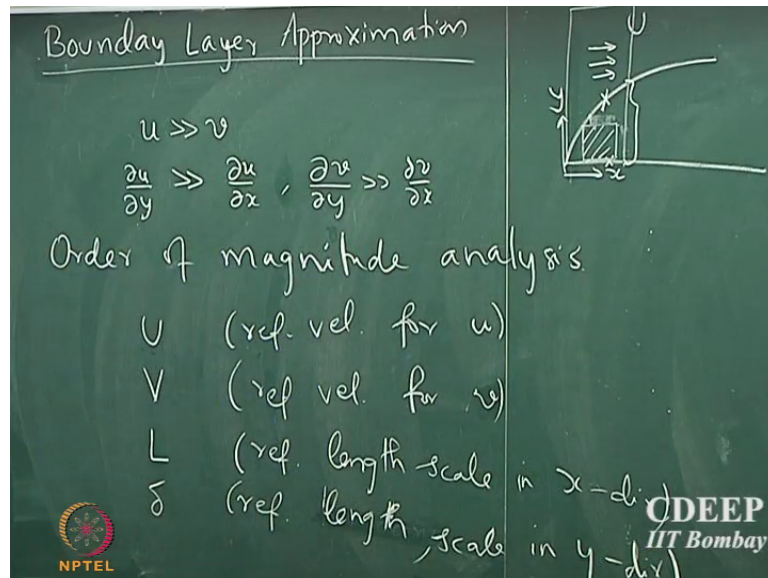 Bounday Layer Approximation
U
y
x
u >> v
∂u/∂y >> ∂u/∂x , ∂v/∂y >> ∂v/∂x
Order of magnitude analysis.
U (ref. vel. for u)
V (ref vel. for v)
L (ref. length scale in x-dir)
δ (ref. length scale in y-dir)
CDEEP
IIT Bombay
NPTEL